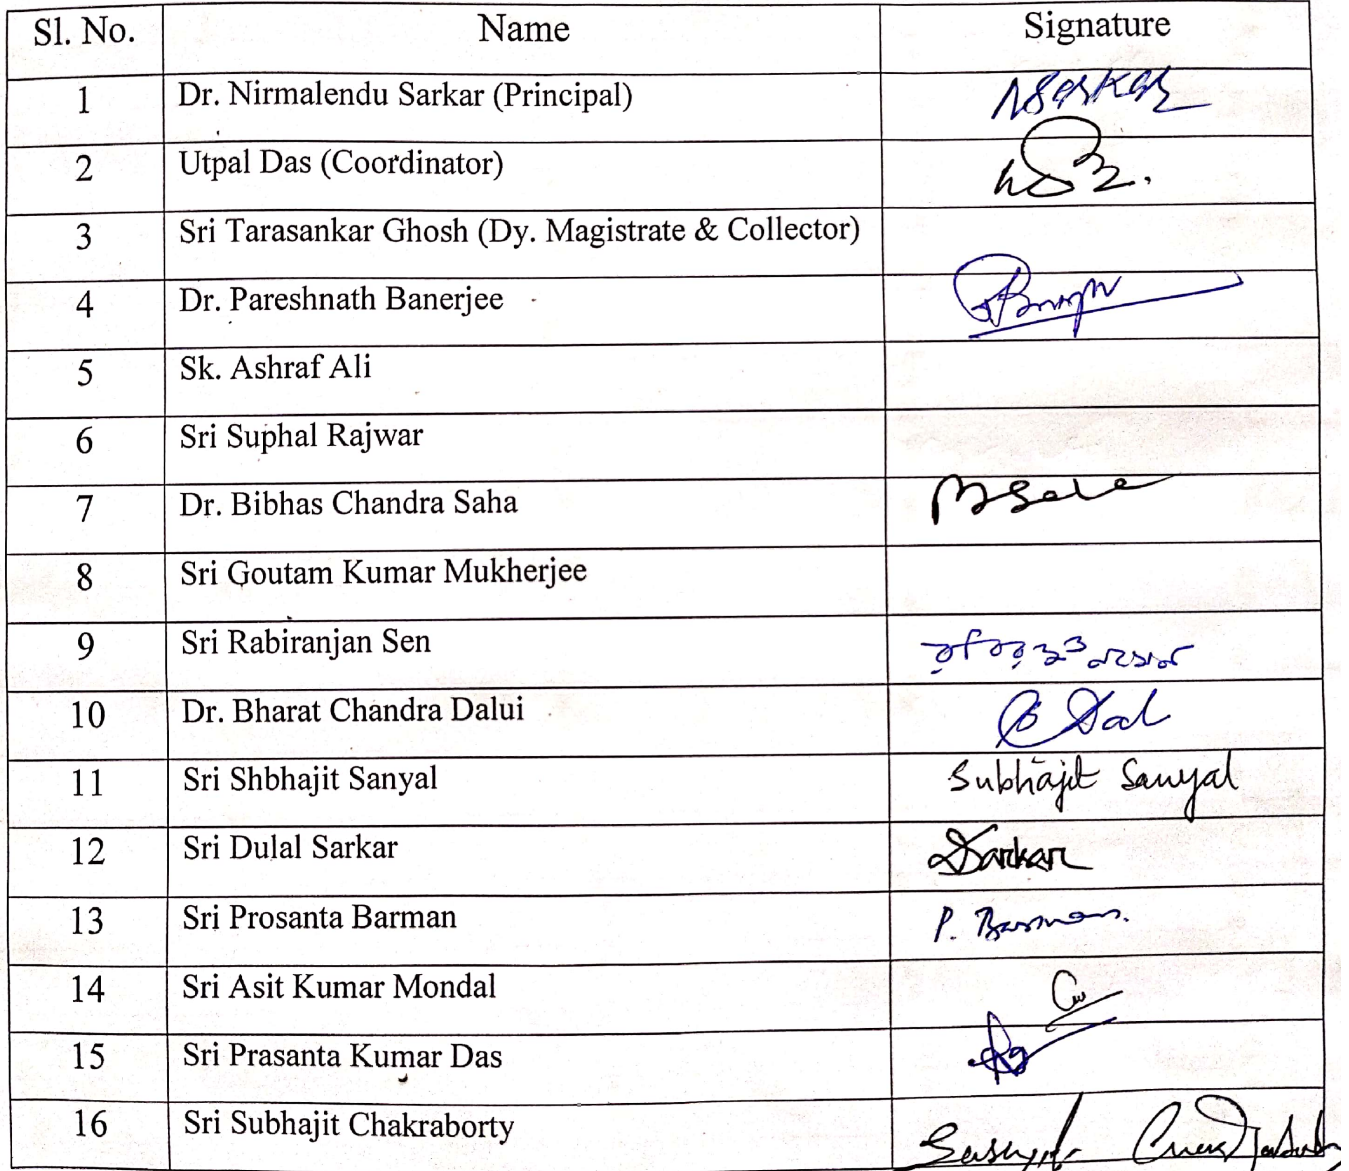 Sl. No. Name Signature
1 Dr. Nirmalendu Sarkar (Principal) NSarkar
2 Utpal Das (Coordinator)
3 Sri Tarasankar Ghosh (Dy. Magistrate & Collector)
4 Dr. Pareshnath Banerjee
5 Sk. Ashraf Ali
6 Sri Suphal Rajwar
7 Dr. Bibhas Chandra Saha BSaha
8 Sri Goutam Kumar Mukherjee
9 Sri Rabiranjan Sen
10 Dr. Bharat Chandra Dalui
11 Sri Shbhajit Sanyal Subhajit Sanyal
12 Sri Dulal Sarkar DSarkar
13 Sri Prosanta Barman P. Barman.
14 Sri Asit Kumar Mondal
15 Sri Prasanta Kumar Das
16 Sri Subhajit Chakraborty